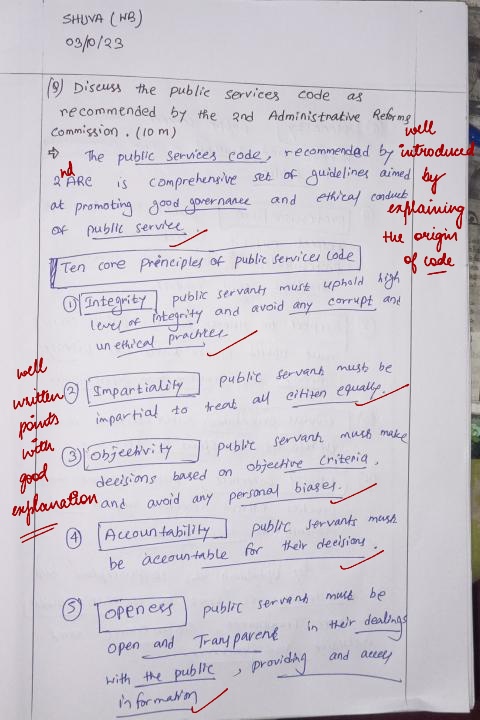 SHUVA (NB)
03/10/23
(Q) Discuss the public services code as
recommended by the 2nd Administrative Reforms
Commission. (10 m)
⇒ The public services code, recommended by
2nd ARC is comprehensive set of guidelines aimed
at promoting good governance and ethical conduct
of public service.
well
introduced
by
explaining
the origin
of code
Ten core principles of public services code
① Integrity public servants must uphold high
level of integrity and avoid any corrupt and
unethical practices
well
written
points
with
good
explanation
② Impartiality public servant must be
impartial to treat all citizen equally.
③ Objectivity public servant must make
decisions based on objective criteria,
and avoid any personal biases.
④ Accountability public servants must
be accountable for their decisions.
⑤ OPENESS public servant must be
open and Transparent in their dealings
with the public, providing and access
information